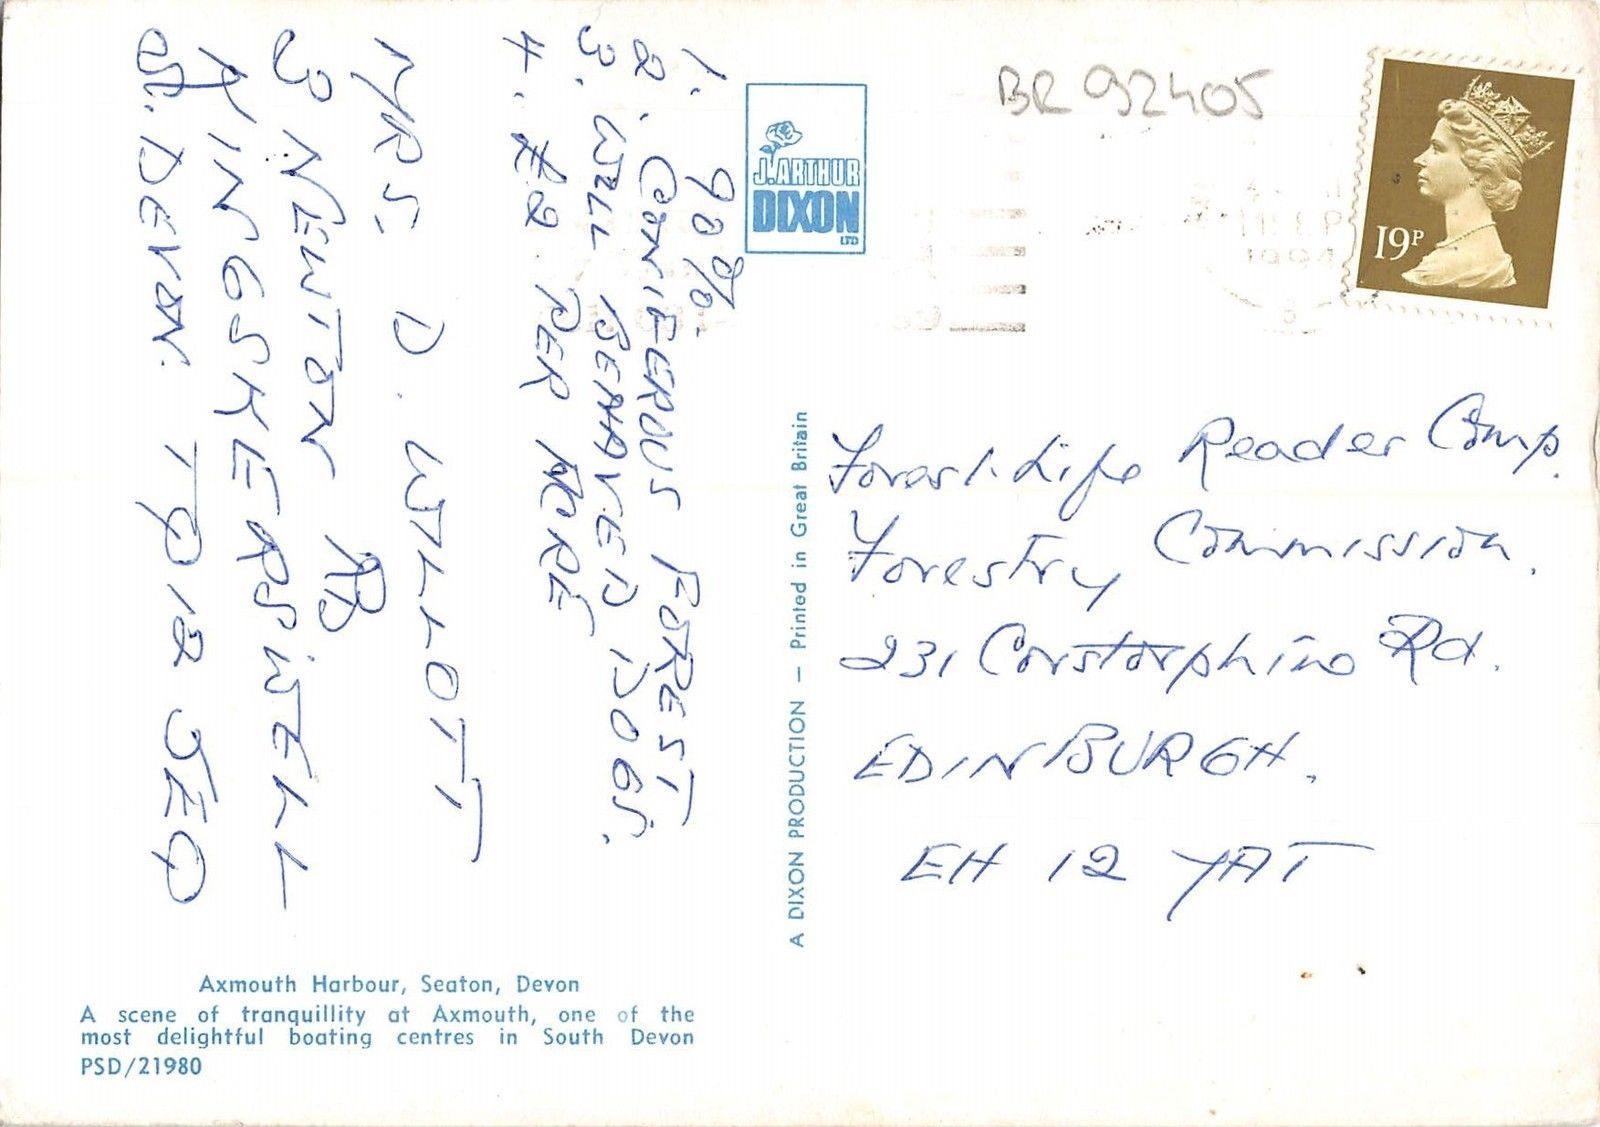 1. 90%.
2. CONIFEROUS FOREST
3. WELL BEHAVED DOGS.
4. £2. PER ACRE
MRS D. WILLOTT
3 NEWTON RD
KINGSKERSWELL
DEVON. TQ12 5EQ
J. ARTHUR
DIXON
LTD
BR 92405
19P
Forest Life Reader Comp.
Forestry Commission.
231 Corstorphine Rd.
EDINBURGH.
EH 12 7AT
A DIXON PRODUCTION — Printed in Great Britain
Axmouth Harbour, Seaton, Devon
A scene of tranquillity at Axmouth, one of the
most delightful boating centres in South Devon
PSD/21980